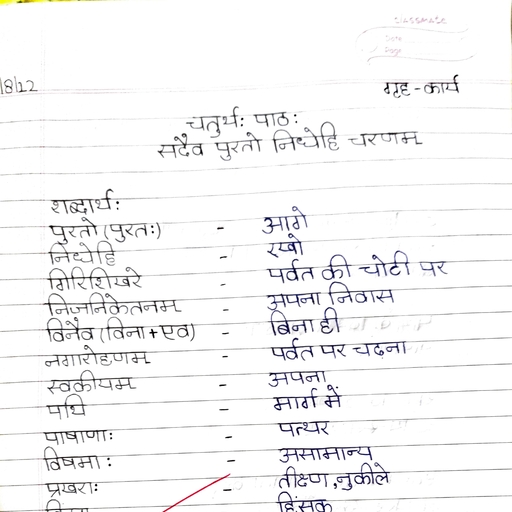 classmate
Date
Page
8/12
गृह-कार्य
चतुर्थः पाठः
सदैव पुरतो निधेहि चरणम्
शब्दार्थः
पुरतो (पुरतः) - आगे
निधेहि - रखो
गिरिशिखरे - पर्वत की चोटी पर
निजनिकेतनम - अपना निवास
विनैव (विना+एव) - बिना ही
नगारोहणम - पर्वत पर चढना
स्वकीयम - अपना
पथि - मार्ग में
पाषाणाः - पत्थर
विषमाः - असामान्य
प्रखराः - तीक्ष्ण, नुकीले
हिंसक